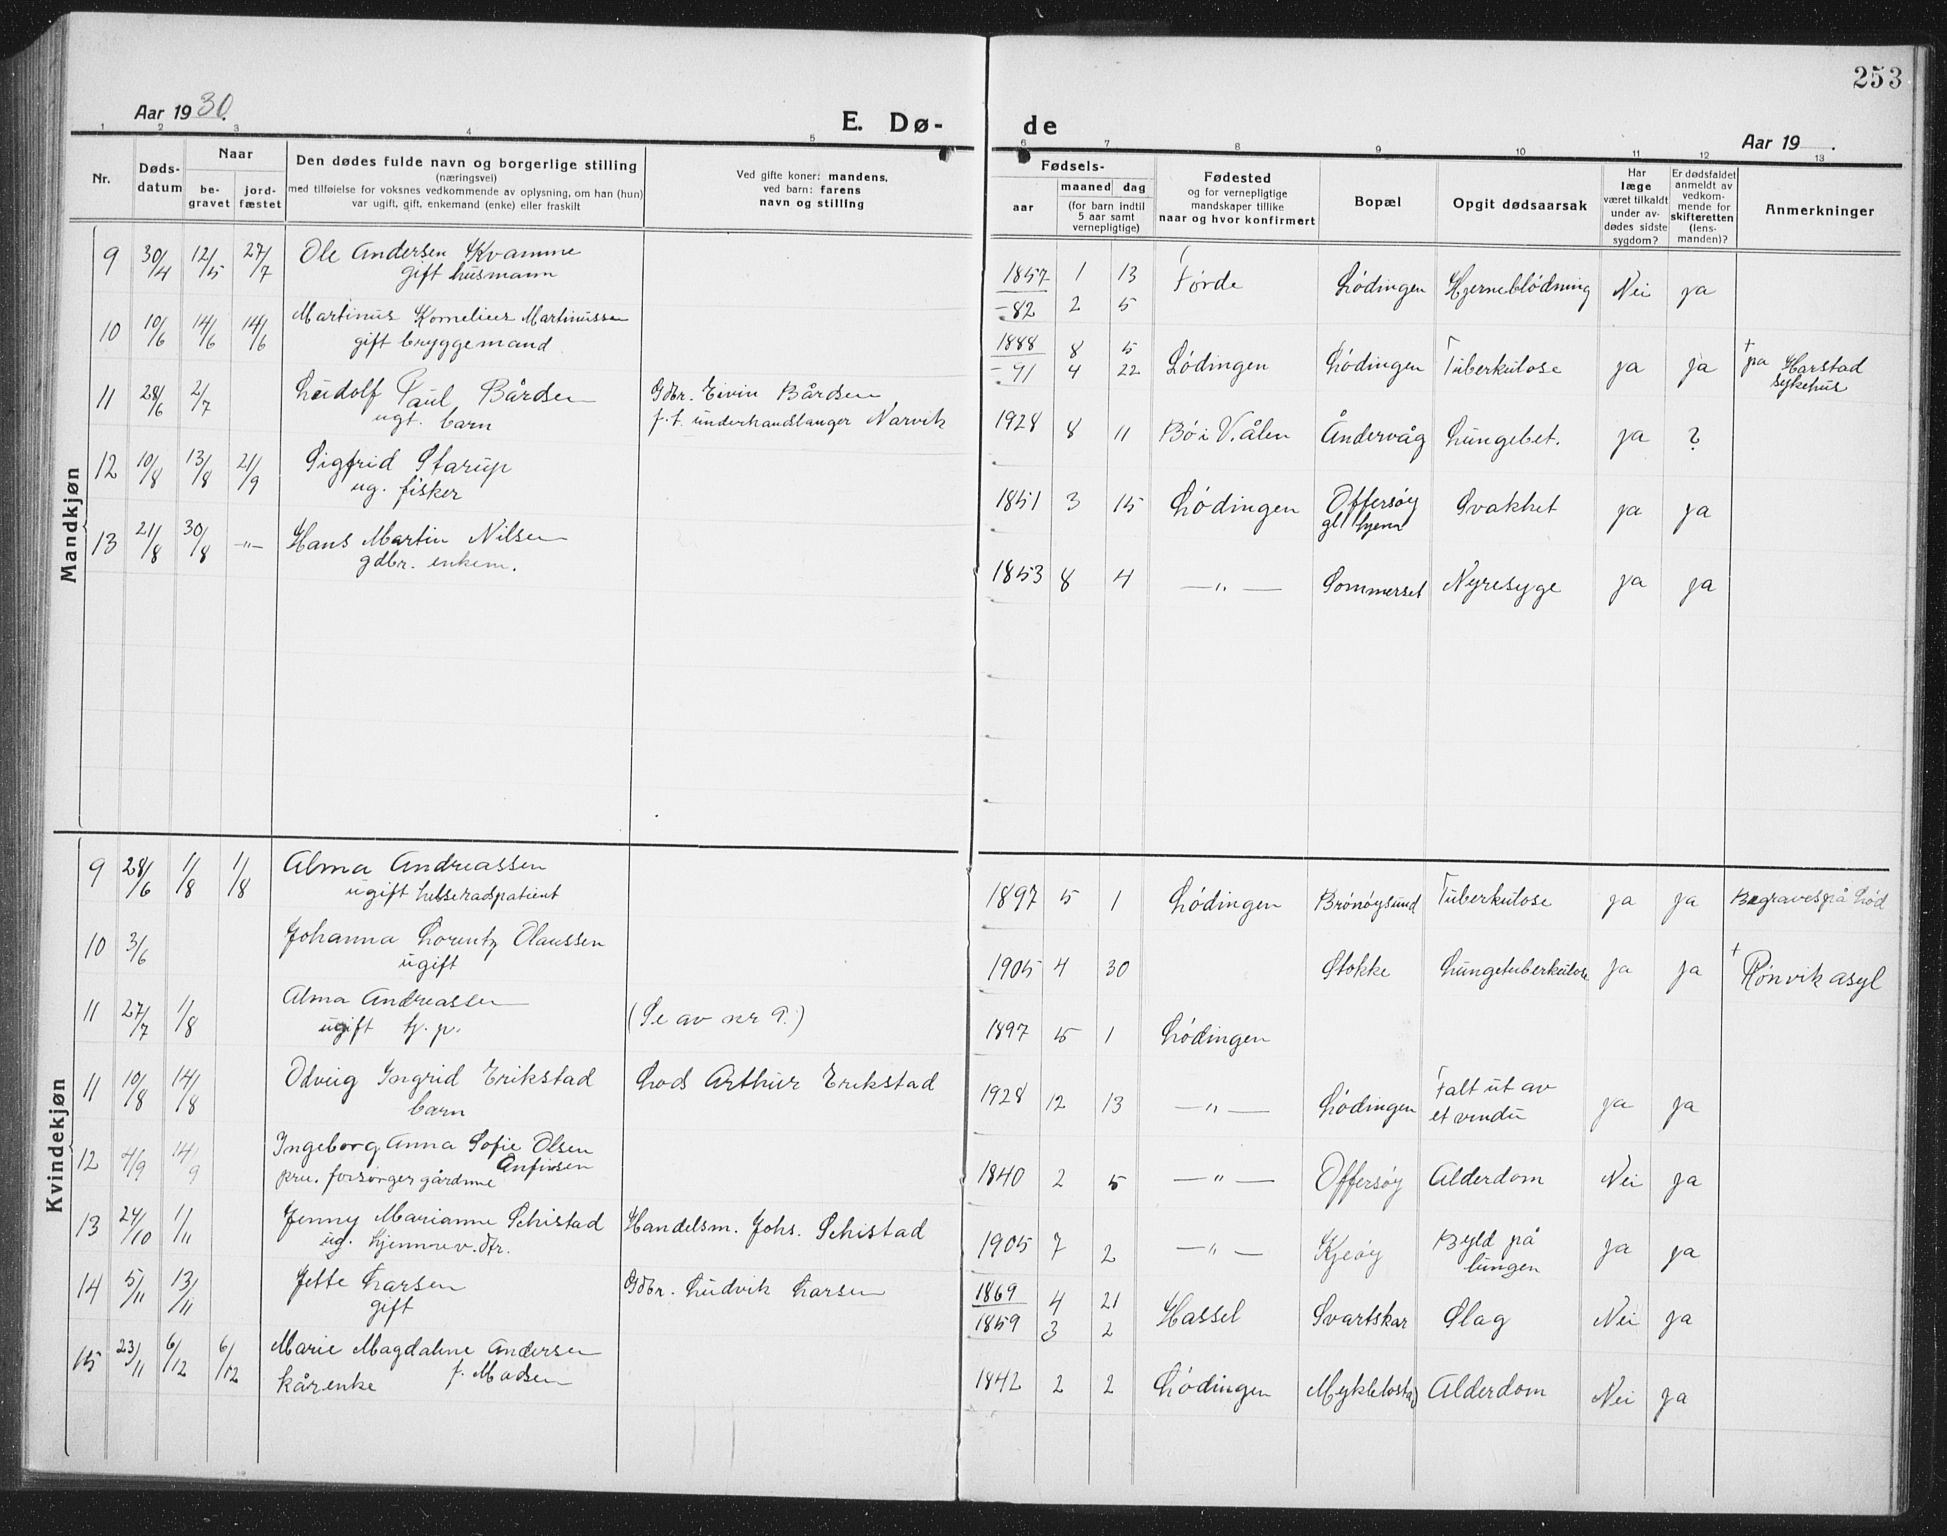 253
Aar 1930.
E. Dø-
de
Aar 19 .
1 2 3 4 5 6 7 8 9 10 11 12 13
Nr.
Døds-
datum
Naar
be-
gravet
jord-
fæstet
Den dødes fulde navn og borgerlige stilling
(næringsvei)
med tilføielse for voksnes vedkommende av oplysning, om han (hun)
var ugift, gift, enkemand (enke) eller fraskilt
Ved gifte koner: mandens,
ved barn: farens
navn og stilling
Fødsels-
aar
maaned dag
(for barn indtil
5 aar samt
vernepligtige)
Fødested
og for vernepligtige
mandskaper tillike
naar og hvor konfirmert
Bopæl
Opgit dødsaarsak
Har
læge
været tilkaldt
under av-
dødes sidste
sygdom?
Er dødsfaldet
anmeldt av
vedkom-
mende for
skifteretten
(lens-
manden)?
Anmerkninger
Mandkjøn
9 30/4 12/5 27/7 Ole Andersen Kvamme
gift husmann
1857 1 13 Førde Lødingen Hjerneblødning Nei ja
-82 2 5
10 10/6 14/6 14/6 Martinus Kornelius Martinussen
gift bryggemand
1888 8 5 Lødingen Lødingen Tuberkulose ja ja † pa Harstad
-91 4 22 sykehus
11 28/6 2/7 Ludolf Paul Bårdsen Gdbr. Eivin Bårdsen
ugt. barn f. t. underhandlanger Narvik
1928 8 11 Bø i V.ålen Åndervåg Lungebet. ja ?
12 10/8 13/8 21/9 Sigfrid Starup
ug. fisker
1851 3 15 Lødingen Offersøy Svakhet ja ja
gl hjem
13 21/8 30/8 -"- Hans Martin Nilsen
gdbr. enkem.
1853 8 4 -"- Sommerset Nyresyge ja ja
Kvindekjøn
9 28/6 1/8 1/8 Alma Andreassen
ugift helseradspatient
1897 5 1 Lødingen Brönöysund Tuberkulose ja ja Begraves på Lød
10 3/6 Johanna Lorentz Olaussen
ugift
1905 4 30 Stokke Lungetuberkulose ja ja † Rønvik asyl
11 27/7 1/8 Alma Andreassen (Se av nr 9.)
ugift tj. p.
1897 5 1 Lødingen
11 10/8 14/8 Odveig Ingrid Erikstad Lods Arthur Erikstad
barn
1928 12 13 -"- Lødingen Falt ut av ja ja
et vindu
12 4/9 14/9 Ingeborg Anna Sofie Olsen
Anfinsen
forsørger
1840 2 5 -"- Offersøy Alderdom Nei ja
13 24/10 1/11 Jenny Marianne Schistad Handelsm. Johs. Schistad
ug. hjemmev. dtr.
1905 7 2 -"- Kjeøy Byld på ja ja
lungen
14 5/11 13/11 Jette Larsen Gdbr. Ludvik Larsen
gift
1869 4 21 Hassel Svartskar Slag Nei ja
1859 3 2
15 23/11 6/12 6/12 Marie Magdalene Andersen
kårenke f. Madsen
1842 2 2 Lødingen Alderdom Nei ja